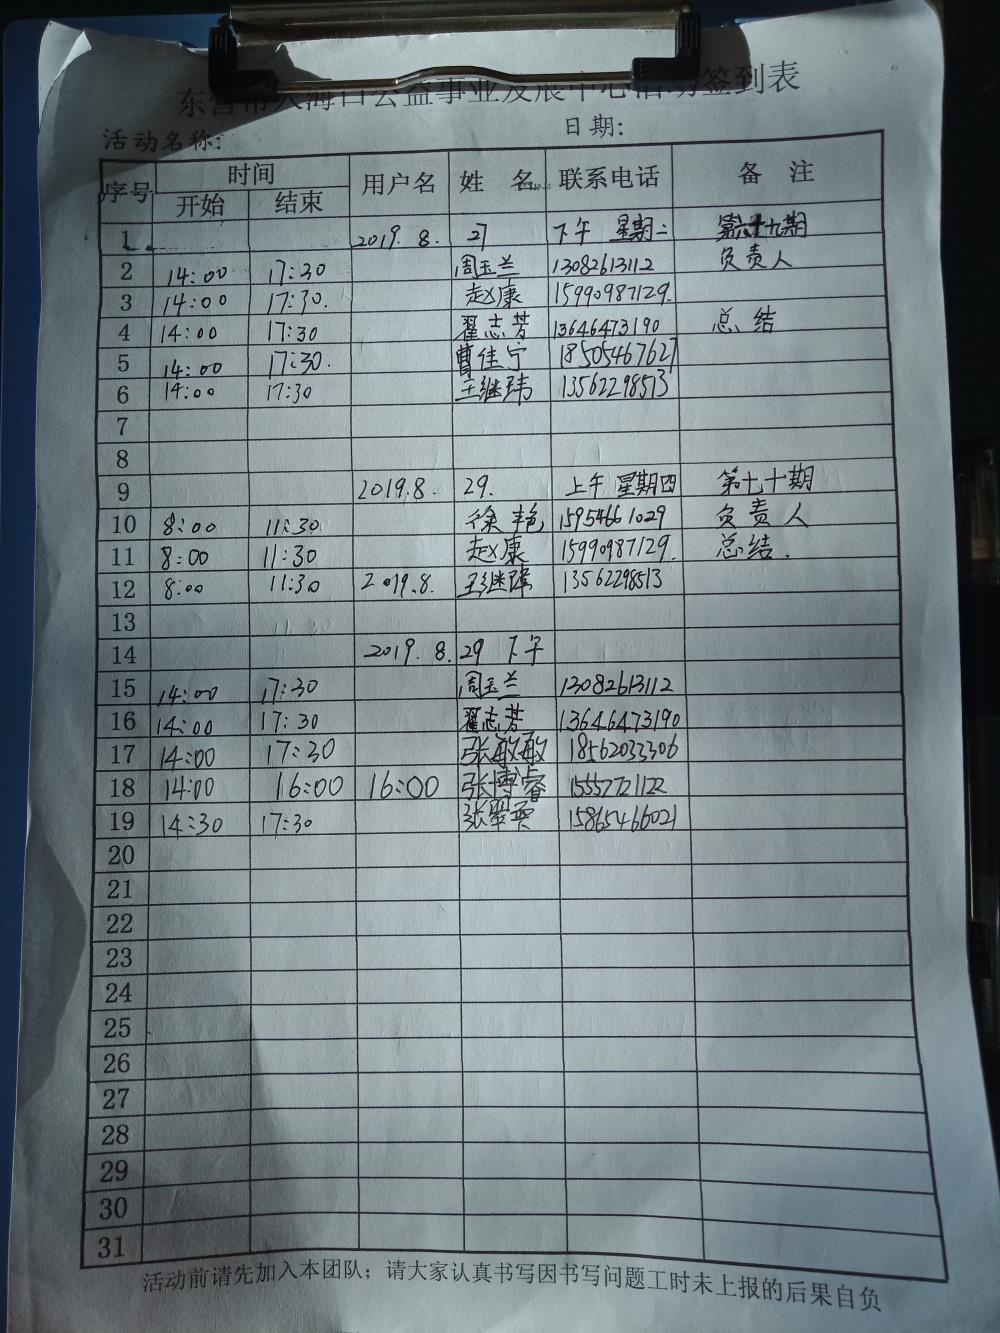 东营市入海口公益事业发展中心活动签到表
活动名称: 日期:
序号 时间 用户名 姓 名 联系电话 备 注
开始 结束
1 2019.8. 27 下午 星期二 第六十九期
2 14:00 17:30 周玉兰 13082613112 负责人
3 14:00 17:30. 赵康 15990987129.
4 14:00 17:30 翟志芳 13646473190 总结
5 14:00 17:30. 曹佳宁 18505467627
6 14:00 17:30 王继玮 13562298513
7
8
9 2019.8. 29. 上午 星期四 第七十期
10 8:00 11:30 徐艳 15954661029 负责人
11 8:00 11:30 赵康 15990987129. 总结.
12 8:00 11:30 2019.8. 王继玮 13562298513
13 11:30
14 2019.8. 29 下午
15 14:00 17:30 周玉兰 13082613112
16 14:00 17:30 翟志芳 13646473190
17 14:00 17:30 张敏敏 18562033306
18 14:00 16:00 16:00 张博睿 15557271122
19 14:30 17:30 张翠英 15865466021
20
21
22
23
24
25
26
27
28
29
30
31
活动前请先加入本团队；请大家认真书写因书写问题工时未上报的后果自负